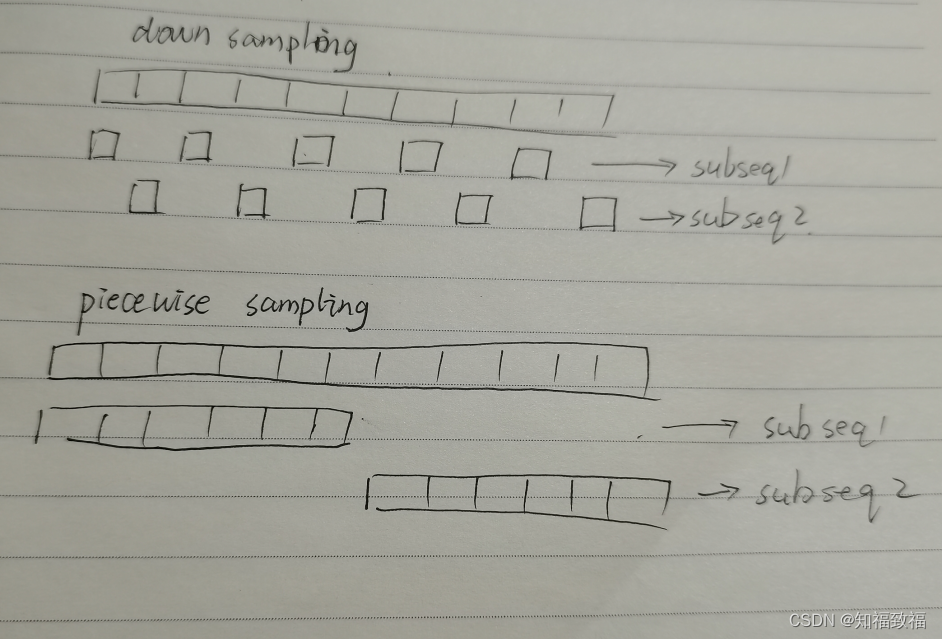 down sampling
subseq1
subseq2
piecewise sampling
subseq1
subseq2
CSDN @知福致福